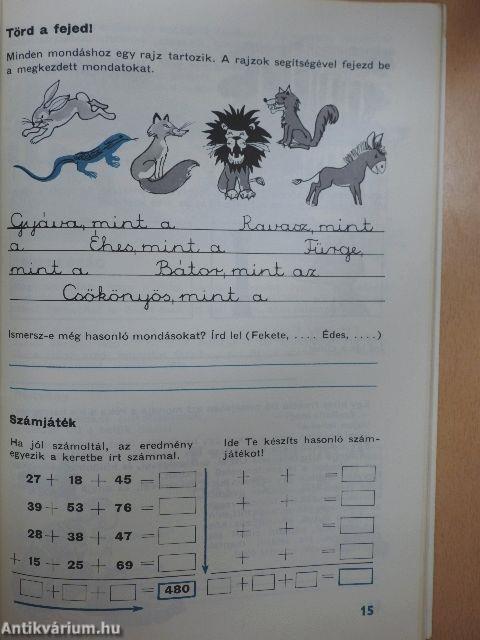 Törd a fejed!
Minden mondáshoz egy rajz tartozik. A rajzok segítségével fejezd be
a megkezdett mondatokat.
Gyáva, mint a Ravasz, mint
a Éhes, mint a Fürge,
mint a Bátor, mint az
Csökönyös, mint a
Ismersz-e még hasonló mondásokat? Írd le! (Fekete, .... Édes, ....)
Számjáték
Ha jól számoltál, az eredmény
egyezik a keretbe írt számmal.
Ide Te készíts hasonló szám-
játékot!
27 + 18 + 45 = + + =
39 + 53 + 76 = + + =
28 + 38 + 47 = + + =
+ 15 + 25 + 69 = + + =
+ + = 480 + + =
15
Antikvárium.hu